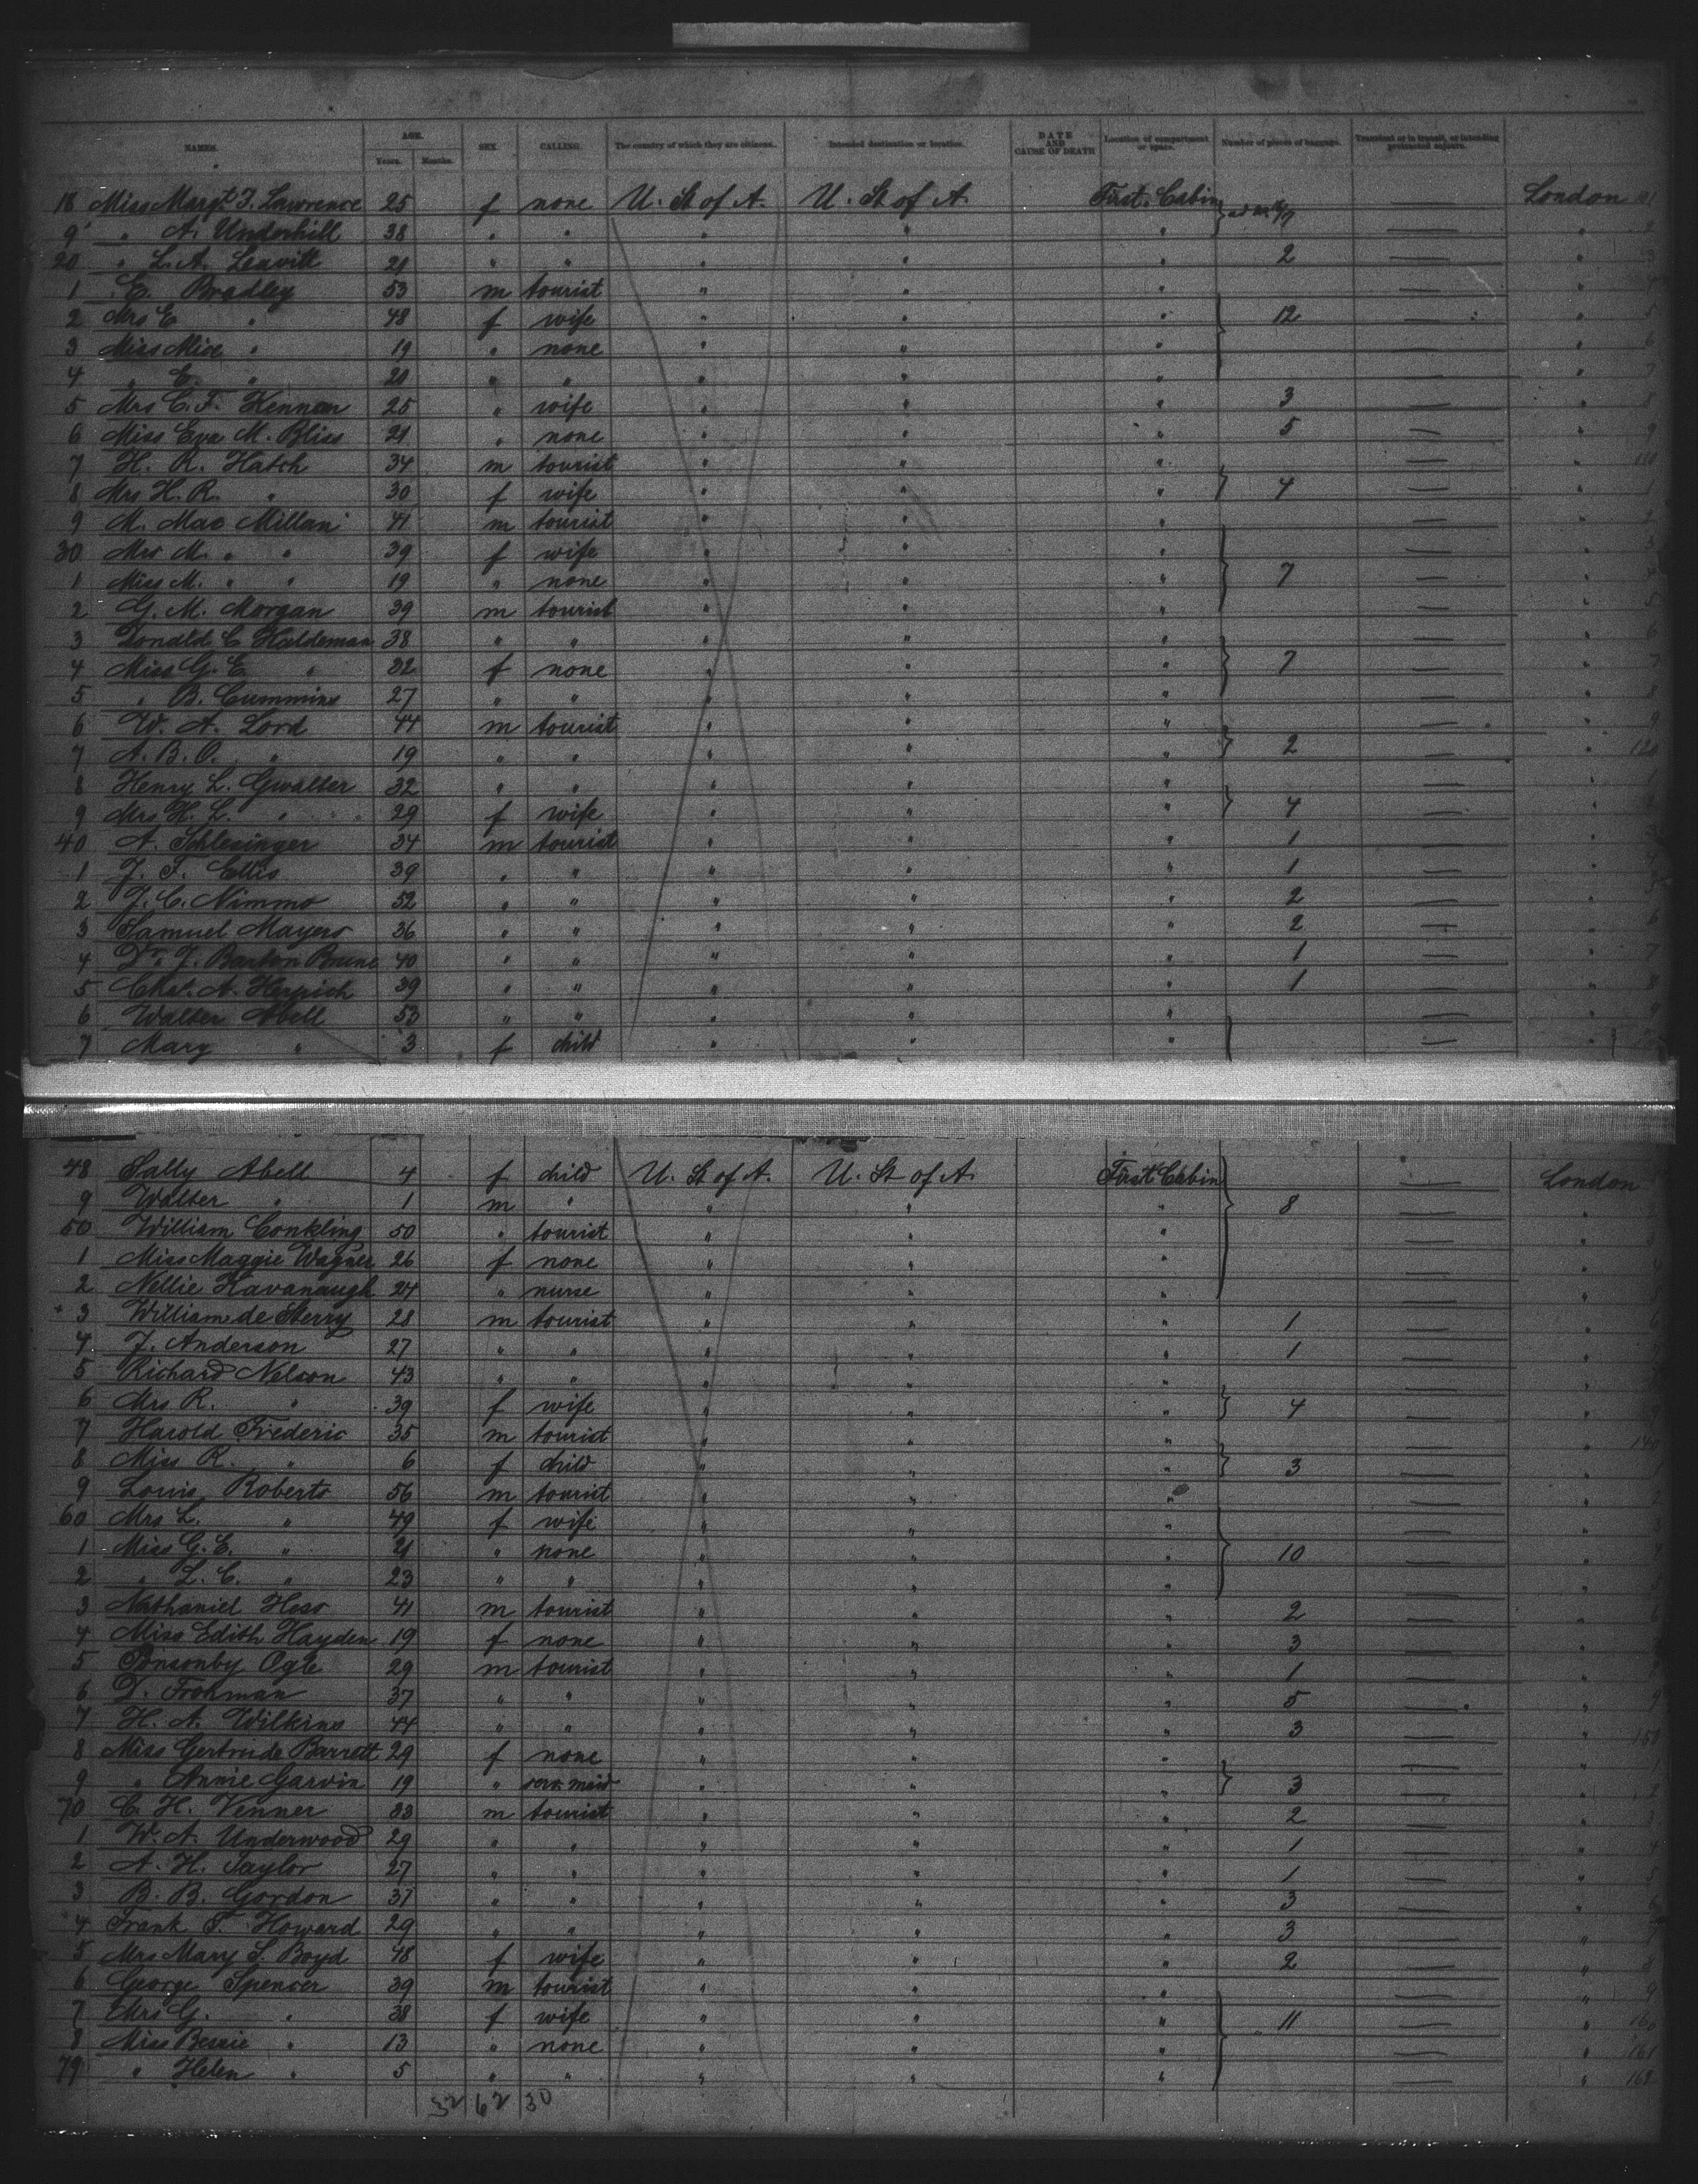 NAMES. AGE. Years. Months. SEX. CALLING. The country of which they are citizens. Intended destination or location. DATE AND CAUSE OF DEATH Location of compartment or space. Number of pieces of baggage. Transient or in transit, or intending protracted sojourn.
18 Miss Margt J. Lawrence 25 f none U. St of A. U. St of A. First Cabin — London
9 " A. Underhill 38 " " " " " — "
20 " L. A. Leavitt 21 " " " " " 2 — "
1 E. Bradley 53 m tourist " " " — "
2 Mrs E " 48 f wife " " " 12 — "
3 Miss Alice " 19 " none " " " — "
4 " E. " 20 " " " " " — "
5 Mrs C. F. Kennan 25 " wife " " " 3 — "
6 Miss Eva M. Bliss 21 " none " " " 5 — "
7 H. R. Hatch 34 m tourist " " " — "
8 Mrs H. R. " 30 f wife " " " 4 — "
9 M. Mac Millan 41 m tourist " " " — "
30 Mrs M. " " 39 f wife " " " — "
1 Miss M. " " 19 " none " " " 7 — "
2 G. M. Morgan 39 m tourist " " " — "
3 Donald C Haldeman 38 " " " " " — "
4 Miss G. E " 32 f none " " " 7 — "
5 " B. Cummins 27 " " " " " — "
6 W. A. Lord 44 m tourist " " " — "
7 A. B. O. " 19 " " " " " 2 — " 120
8 Henry L. Gwalter 32 " " " " " — " 1
9 Mrs H. L. " 29 f wife " " " 4 — "
40 A. Schlesinger 34 m tourist " " " 1 — "
1 J. F. Ellis 39 " " " " " 1 — "
2 J. C. Nimmo 52 " " " " " 2 — "
3 Samuel Mayers 36 " " " " " 2 — " 6
4 Dr. J. Barton Brune 40 " " " " " 1 — " 7
5 Chas. A. Herpich 39 " " " " " 1 — " 8
6 Walter Abell 53 " " " " " — " 9
7 Mary " 3 f child " " " — "
48 Sally Abell 4 f child U. St of A. U. St of A. First Cabin — London
9 Walter " 1 m " " " " 8 — "
50 William Conkling 50 " tourist " " " — "
1 Miss Maggie Wagner 26 f none " " " — "
2 Nellie Kavanaugh 24 " nurse " " " — "
3 William de Sterry 28 m tourist " " " 1 — "
4 J. Anderson 27 " " " " " 1 — "
5 Richard Nelson 43 " " " " " — "
6 Mrs R. " 39 f wife " " " 4 — "
7 Harold Frederic 35 m tourist " " " — " 140
8 Miss R. " 6 f child " " " 3 — "
9 Louis Roberts 56 m tourist " " " — " 2
60 Mrs L. " 49 f wife " " " — " 3
1 Miss G. E. " 21 " none " " " 10 — "
2 " L. C. " 23 " " " " " — "
3 Nathaniel Hess 41 m tourist " " " 2 — " 6
4 Miss Edith Hayden 19 f none " " " 3 — "
5 Ponsonby Ogle 29 m tourist " " " 1 — "
6 D. Frohman 37 " " " " " 5 — " 9
7 H. A. Wilkins 44 " " " " " 3 — " 150
8 Miss Gertrude Barrett 29 f none " " " — " 1
9 " Annie Garvin 19 " serv. maid " " " 3 — " 2
70 C. H. Venner 33 m tourist " " " 2 — " 3
1 W. A. Underwood 29 " " " " " 1 — " 4
2 A. H. Taylor 27 " " " " " 1 — " 5
3 B. B. Gordon 37 " " " " " 3 — " 6
4 Frank T. Howard 29 " " " " " 3 — " 7
5 Mrs Mary S. Boyd 48 f wife " " " 2 — " 8
6 George Spencer 39 m tourist " " " — " 9
7 Mrs G. " 38 f wife " " " 11 — " 160
8 Miss Bessie " 13 " none " " " — " 161
79 " Helen " 5 " " " " " — " 162
32 62 30